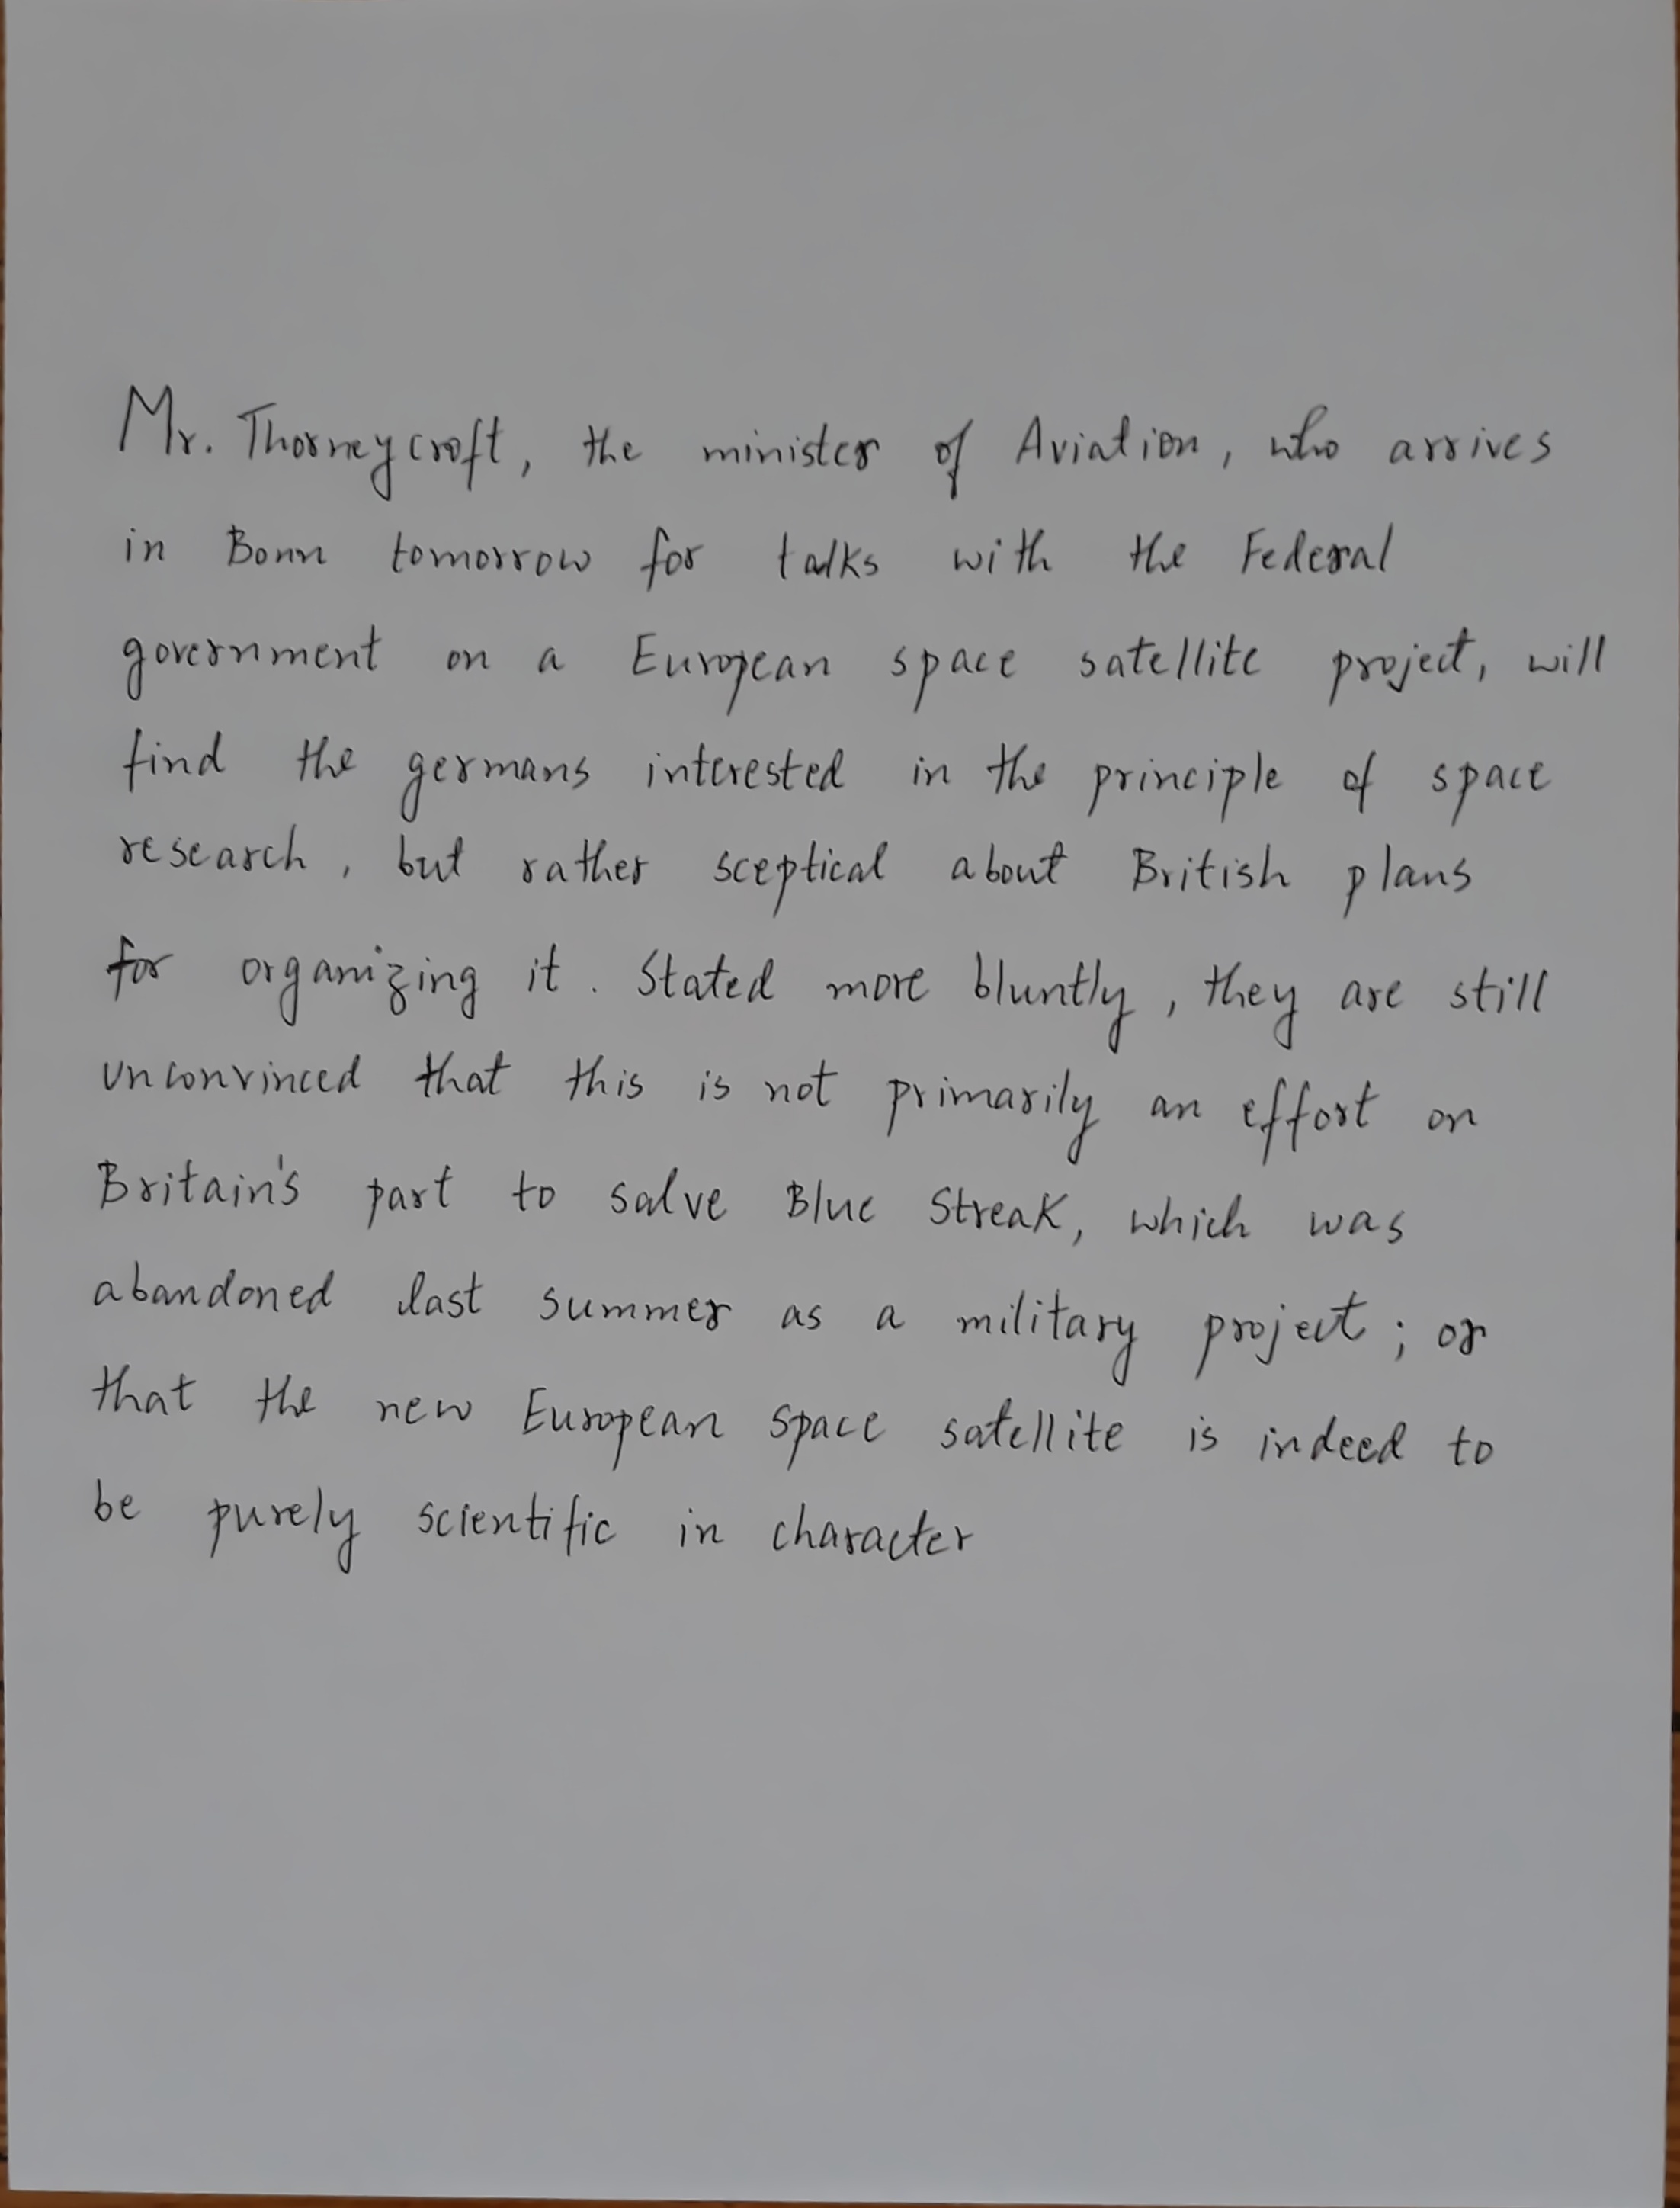 Mr. Thorneycroft, the minister of Aviation, who arrives
in Bonn tomorrow for talks with the Federal
government on a European space satellite project, will
find the germans interested in the principle of space
research, but rather sceptical about British plans
for organizing it. Stated more bluntly, they are still
unconvinced that this is not primarily an effort on
Britain's part to salve Blue Streak, which was
abandoned last summer as a military project; or
that the new European space satellite is indeed to
be purely scientific in character